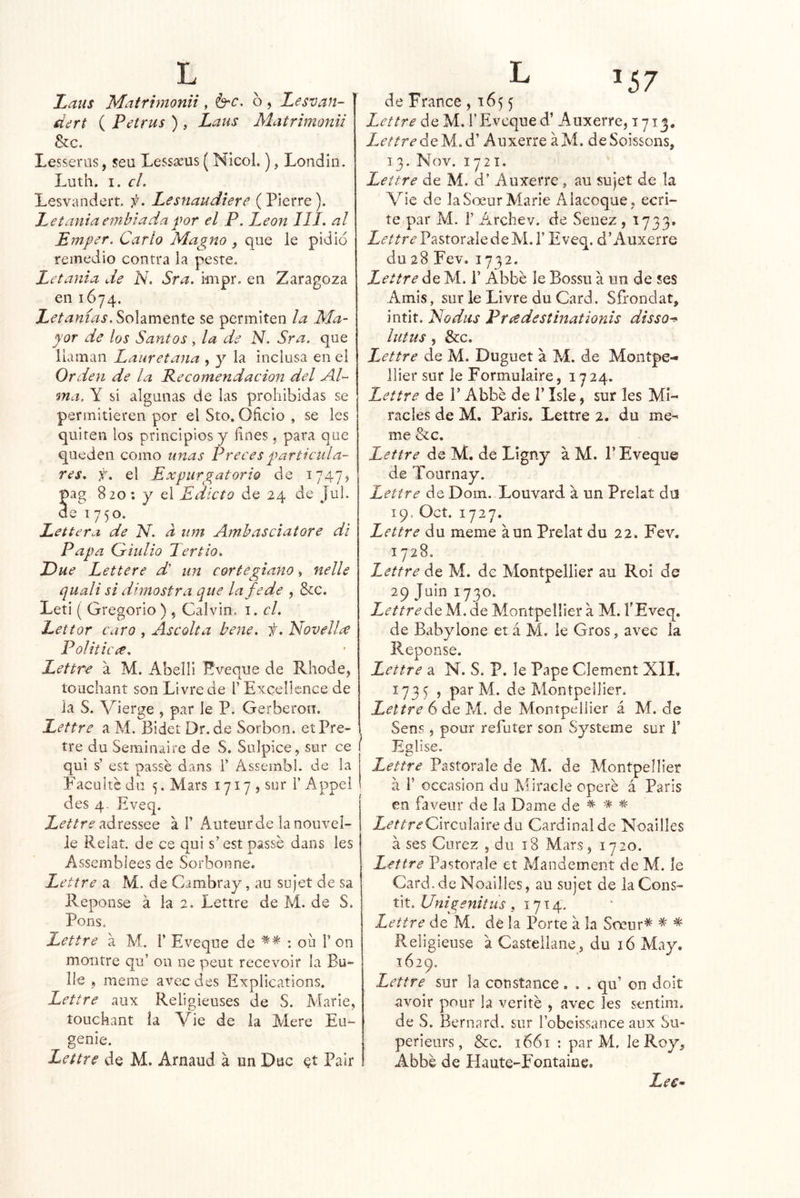 L
Laus Matrimonii, &c. ò, Lesvan-
dert ( Petrus ), Laus Matrimonii
&c.
Lesserus, seu Lessæus ( Nicol. ), Londin.
Luth. 1. cl.
Lesvandert. ꝟ. Lesnaudiere ( Pierre ).
Letania embiada por el P. Leon III. al
Emper. Carlo Magno, que le pidiò
remedio contra la peste.
Letania de N. Sra. impr. en Zaragoza
en 1674.
Letanías. Solamente se permiten la Ma-
yor de los Santos, la de N. Sra. que
llaman Lauretana, y la inclusa en el
Orden de la Recomendacion del Al-
ma. Y si algunas de las prohibidas se
permitieren por el Sto. Oficio, se les
quiten los principios y fines, para que
queden como unas Preces particula-
res. ꝟ. el Expurgatorio de 1747,
pag 820: y el Edicto de 24 de Jul.
de 1750.
Lettera de N. à um Ambasciatore di
Papa Giulio Tertio.
Due Lettere d' un cortegiano, nelle
quali si dimostra que la fede, &c.
Leti ( Gregorio ), Calvin. 1. cl.
Lettor caro, Ascolta bene. ꝟ. Novellæ
Politicæ.
Lettre à M. Abelli Eveque de Rhode,
touchant son Livre de l' Excellence de
la S. Vierge, par le P. Gerberon.
Lettre a M. Bidet Dr. de Sorbon. et Pre-
tre du Seminaire de S. Sulpice, sur ce
qui s' est passè dans l' Assembl. de la
Facultè du 5. Mars 1717, sur l' Appel
des 4. Eveq.
Lettre adressee à l' Auteur de la nouvel-
le Relat. de ce qui s' est passè dans les
Assemblees de Sorbonne.
Lettre a M. de Cambray, au sujet de sa
Reponse à la 2. Lettre de M. de S.
Pons.
Lettre à M. l' Eveque de ** : où l' on
montre qu' on ne peut recevoir la Bu-
lle, meme avec des Explications.
Lettre aux Religieuses de S. Marie,
touchant la Vie de la Mere Eu-
genie.
Lettre de M. Arnaud à un Duc et Pair
L 157
de France, 1655
Lettre de M. l' Eveque d' Auxerre, 1713.
Lettre de M. d' Auxerre à M. de Soissons,
13. Nov. 1721.
Lettre de M. d' Auxerre, au sujet de la
Vie de la Sœur Marie Alacoque, ecri-
te par M. l' Archev. de Senez, 1733.
Lettre Pastorale de M. l' Eveq. d' Auxerre
du 28 Fev. 1732.
Lettre de M. l' Abbè le Bossu à un de ses
Amis, sur le Livre du Card. Sfrondat,
intit. Nodus Prædestinationis disso-
lutus, &c.
Lettre de M. Duguet à M. de Montpe-
llier sur le Formulaire, 1724.
Lettre de l' Abbè de l' Isle, sur les Mi-
racles de M. Paris. Lettre 2. du me-
me &c.
Lettre de M. de Ligny à M. l' Eveque
de Tournay.
Lettre de Dom. Louvard à un Prelat du
19. Oct. 1727.
Lettre du meme à un Prelat du 22. Fev.
1728.
Lettre de M. de Montpellier au Roi de
29 Juin 1730.
Lettre de M. de Montpellier à M. l' Eveq.
de Babylone et á M. le Gros, avec la
Reponse.
Lettre a N. S. P. le Pape Clement XII.
1735, par M. de Montpellier.
Lettre 6 de M. de Montpellier á M. de
Sens, pour refuter son Systeme sur l'
Eglise.
Lettre Pastorale de M. de Montpellier
à l' occasion du Miracle operè á Paris
en faveur de la Dame de * * *
Lettre Circulaire du Cardinal de Noailles
à ses Curez, du 18 Mars, 1720.
Lettre Pastorale et Mandement de M. le
Card. de Noailles, au sujet de la Cons-
tit. Unigenitus, 1714.
Lettre de M. de la Porte à la Sœur* * *
Religieuse à Castellane, du 16 May.
1629.
Lettre sur la constance . . . qu' on doit
avoir pour la veritè, avec les sentim.
de S. Bernard. sur l'obeissance aux Su-
perieurs, &c. 1661 : par M. le Roy,
Abbè de Haute-Fontaine.
Lec-